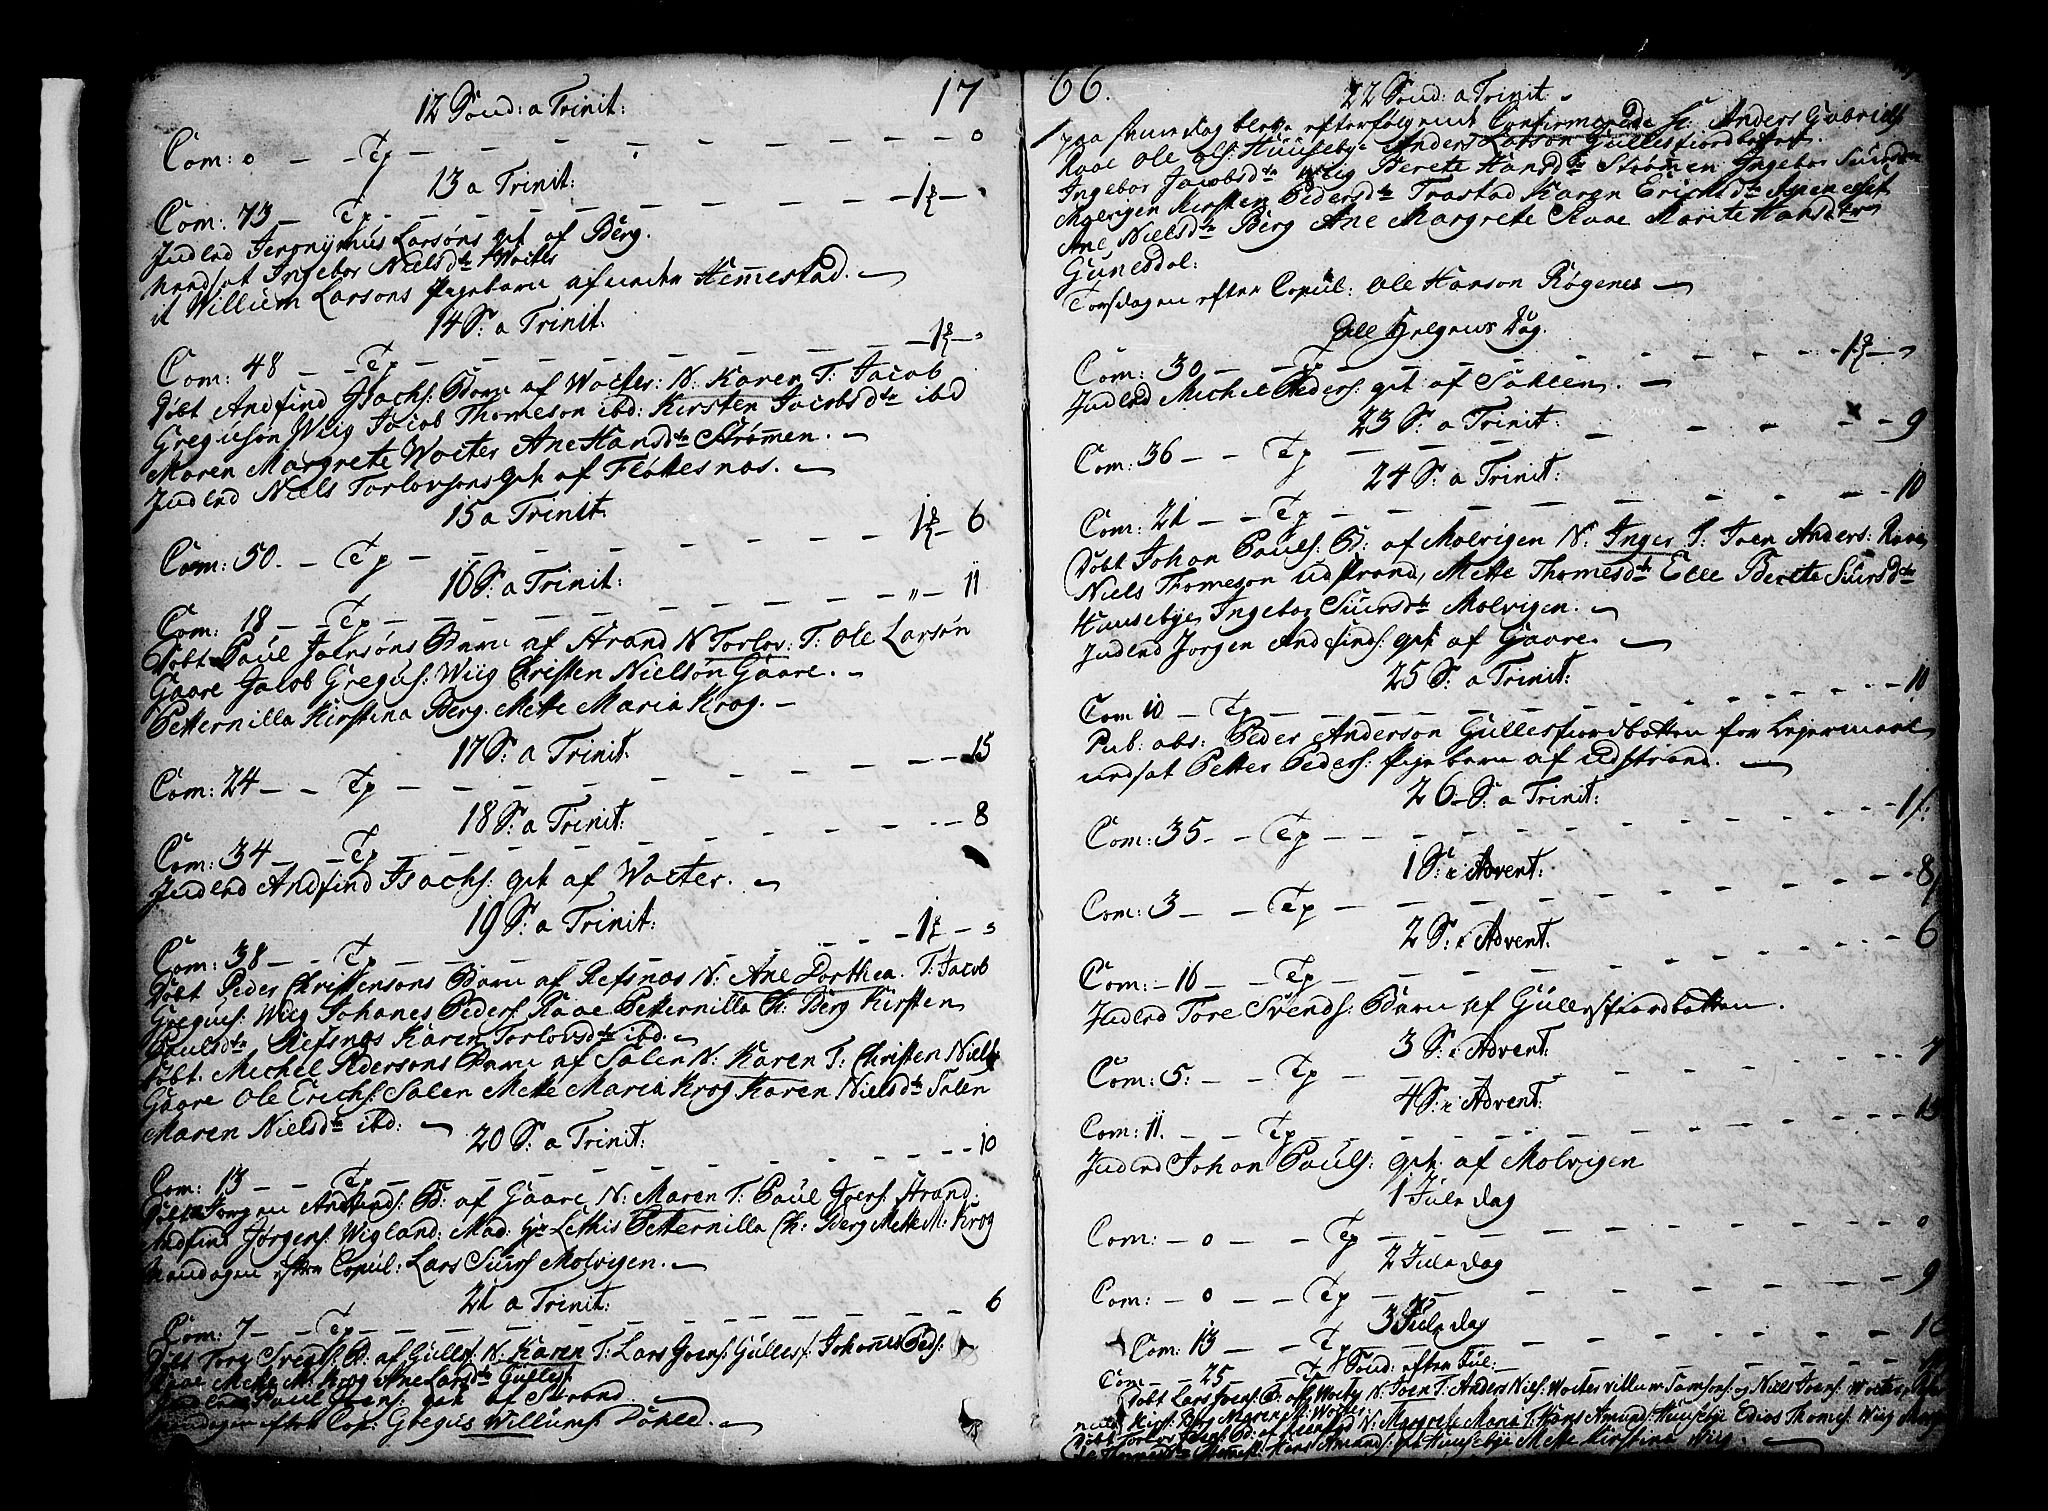 17
12 Sond: a Trinit:
Com: 0 — — Tp — — — — — — 0
13 a Trinit:
Com: 73 — Tp — — — — — — 1
Indled Jeronymus Larsøns qvi af Berg.
Ingebor Nielsdtr Wocter
it Willium Larsons Pigebarn af Hemmestad.
14 S: a Trinit:
Com: 48 — — Tp — — — — — — 1
Døbt Andfind Isachs: Barn af Wocter: N: Karen T: Jacob
Greguson Wiig Jacob Thomeson ibd: Kirsten Jacobsdtr ibd
Maren Margrete Wocter Ane Hansdtr Strømen.
Indled Niels Torlovsons qvi af Fløkesnæs.
15 a Trinit:
Com: 50. — Tp — — — — — — 1 6
16 S: a Trinit:
Com: 18 — — Tp — — — — — — 11
Døbt Paul Joensøns Barn af Strand N Torlov: T: Ole Larsøn
Gaare Jacob Gregus: Wiig Christen Nielsøn Gaare.
Petternilla Kirstina Berg. Mette Maria Krog.
17 S: a Trinit:
Com: 24 — — Tp — — — — — — 15
18 S: a Trinit:
Com: 34 — — Tp — — — — — — 8
Indled Andfind Isachs: qvi af Wocter.
19 S: a Trinit:
Com: 38 — — Tp — — — — — — 1
Døbt Peder Christensons Barn af Refsnæs N: Ane Dorthea. T: Jacob
Gregus: Wiig Johanes Peders Raae Petternilla Ch: Berg Kirsten
Paulsdtr Refsnæs Karen Torlovsdtr ibd.
Døbt. Michel Pedersons Barn af Salen N: Karen T: Christen Niels
Gaare Ole Erichs: Salen Mette Maria Krog Karen Nielsdtr Salen
Maren Nielsdtr ibd:
20 S: a Trinit:
Com: 13 — — Tp — — — — — — 10
Døbt Jørgen Andfinds: B: af Gaare N: Maren T: Paul Joens: Strand.
Andfind Jørgens: Wigland: Mad: Lethis Petternilla Ch: Berg Mette M: Krog
Mandagen efter Copul: Lars Siurs Molvigen.
21 a Trinit:
Com: 7 — — Tp — — — — — — 6
Døbt Tore Svends: B: af Gullesf: N: Karen T: Lars Joens: Gullesf: Johanes Peds:
Raae Mette M: Krog Ane Larsdtr Gullesf:
Indled Paul Joens: qvi af Strand
Mandagen efter Cop: Gregus Willums: Dohle.
66.
22 Sond: a Trinit.
paa samme dag bleve efterfølgende Confirmerede Sc: Anders Gabriels
Raae Ole Ols: Huusebye Anders Larson Gullesfiordbotten.
Ingebor Jacobsdtr Wiig Berete Hansdtr Strømen Ingebor Siursdtr
Molvigen Kirsten Pedersdtr Trastad Karen Erichsdtr
Ane Nielsdtr Berg Ane Margrete Raae Marite Hansdtr
Gunesdal:
Torsdagen efter Copul: Ole Hanson Røgenes
Alle Helgens Dag.
Com: 30 — — Tp — — — — — — 1
Indled Michel Peders: qvi af Sahlen.
23 S: a Trinit:
Com: 36 — — Tp — — — — — — 9
24 S: a Trinit:
Com: 21 — — Tp — — — — — — 10
Døbt Johan Pauls: B: af Molvigen N: Inger T: Iver Anders: Raae
Niels Thomeson Udstrand, Mette Thomesdtr Elle Berete Siursdtr
Huusebye Ingebor Siursdtr Molvigen.
Indled Jørgen Andfinds: qvi af Gaare.
25 S: a Trinit:
Com 10 — Tp — — — — — — 10
Pub: abs: Peder Anderson Gullesfiordbotten for Lejermaal
indsat Petter Peders: Pigebarn af Udstrand.
26 S: a Trinit:
Com: 35 — — Tp — — — — — — 1
1 S: i Advent:
Com: 3 — — Tp — — — — — — 8
2 S: i Advent:
Com: — 16 — — Tp — — — — — — 6
Indled Tore Svends: Barn af Gullesfiordbotten.
3 S: i Advent:
Com: 5: — — Tp — — — — — — 7
4 S: i Advent:
Com: 11. — — Tp — — — — — — 13
Indled Johan Pauls: qvi af Molvigen
1 Jule dag
Com: — 0 — — Tp — — — — — — 0
2 Jule dag
Com: — 0 — — Tp — — — — — — 9
3 Jule dag
Com: 13 — — Tp — — — — — — 1
Sond: efter Jul:
Com: — 25 — — Tp
Døbt Lars Joens: B: af Wocter N: Joen T: Anders Niels: Wocter Villum Samsons: og Niels Joens: Wocter
Kirs: Berg Maren M: Wocter.
Døbt Torlov B: af N: Margrete Maria T: Hans Amunds: Huusebye Edias Thomes: Wiig
Hans Amunds: qvi Huusebye Mette Kirstina Wiig.